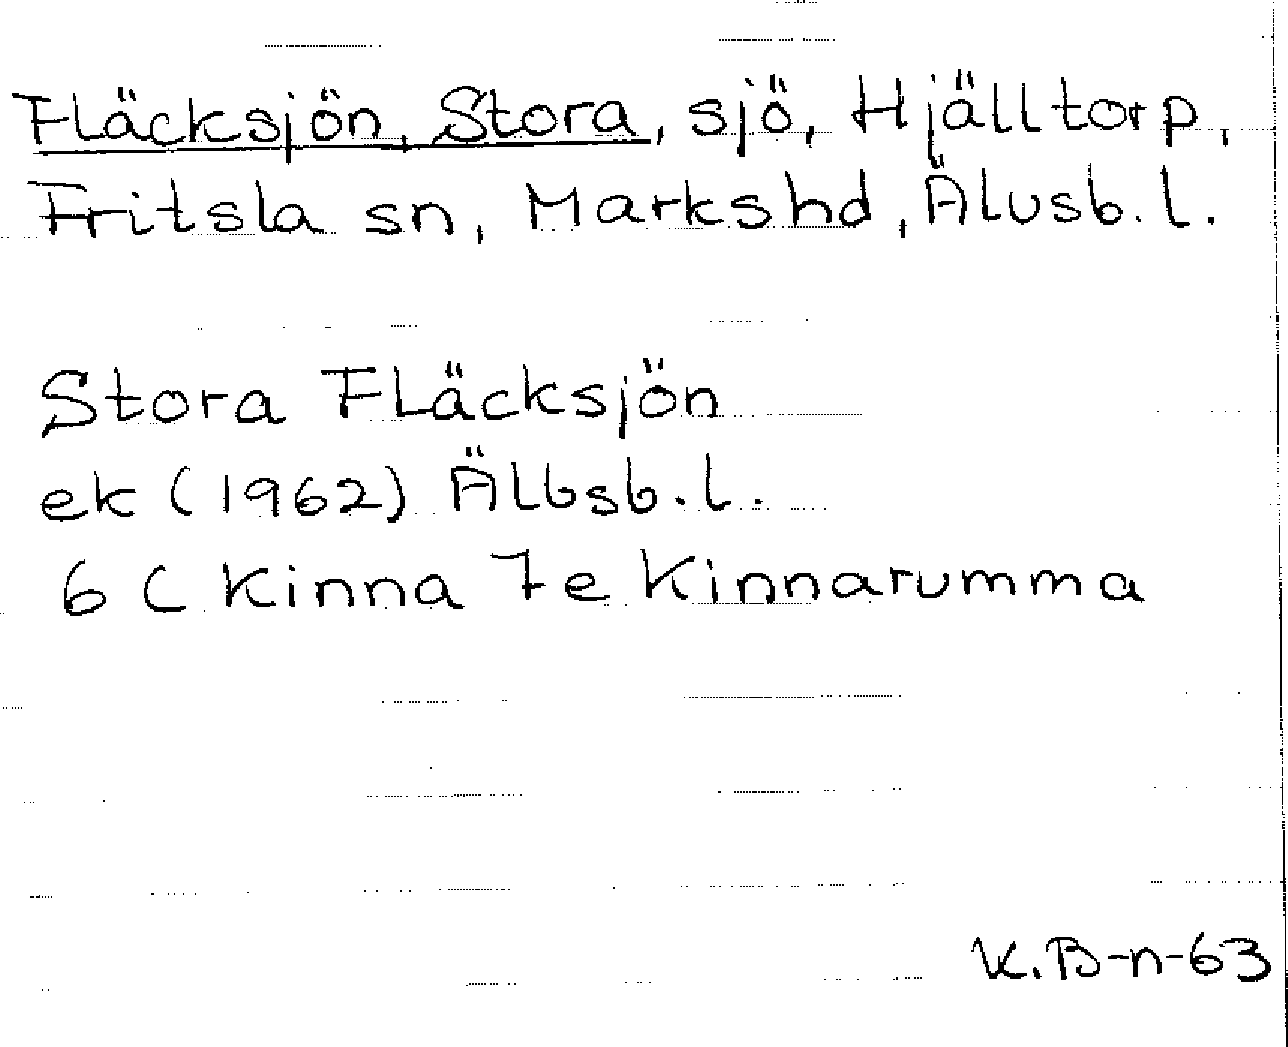 Fläcksjön, Stora, sjö, Hjälltorp,
Fritsla sn, Markshd, Älvsb.l.
Stora Fläcksjön
ek (1962) Älbsb.l.
6 C Kinna 7e Kinnarumma
K.B-n-63